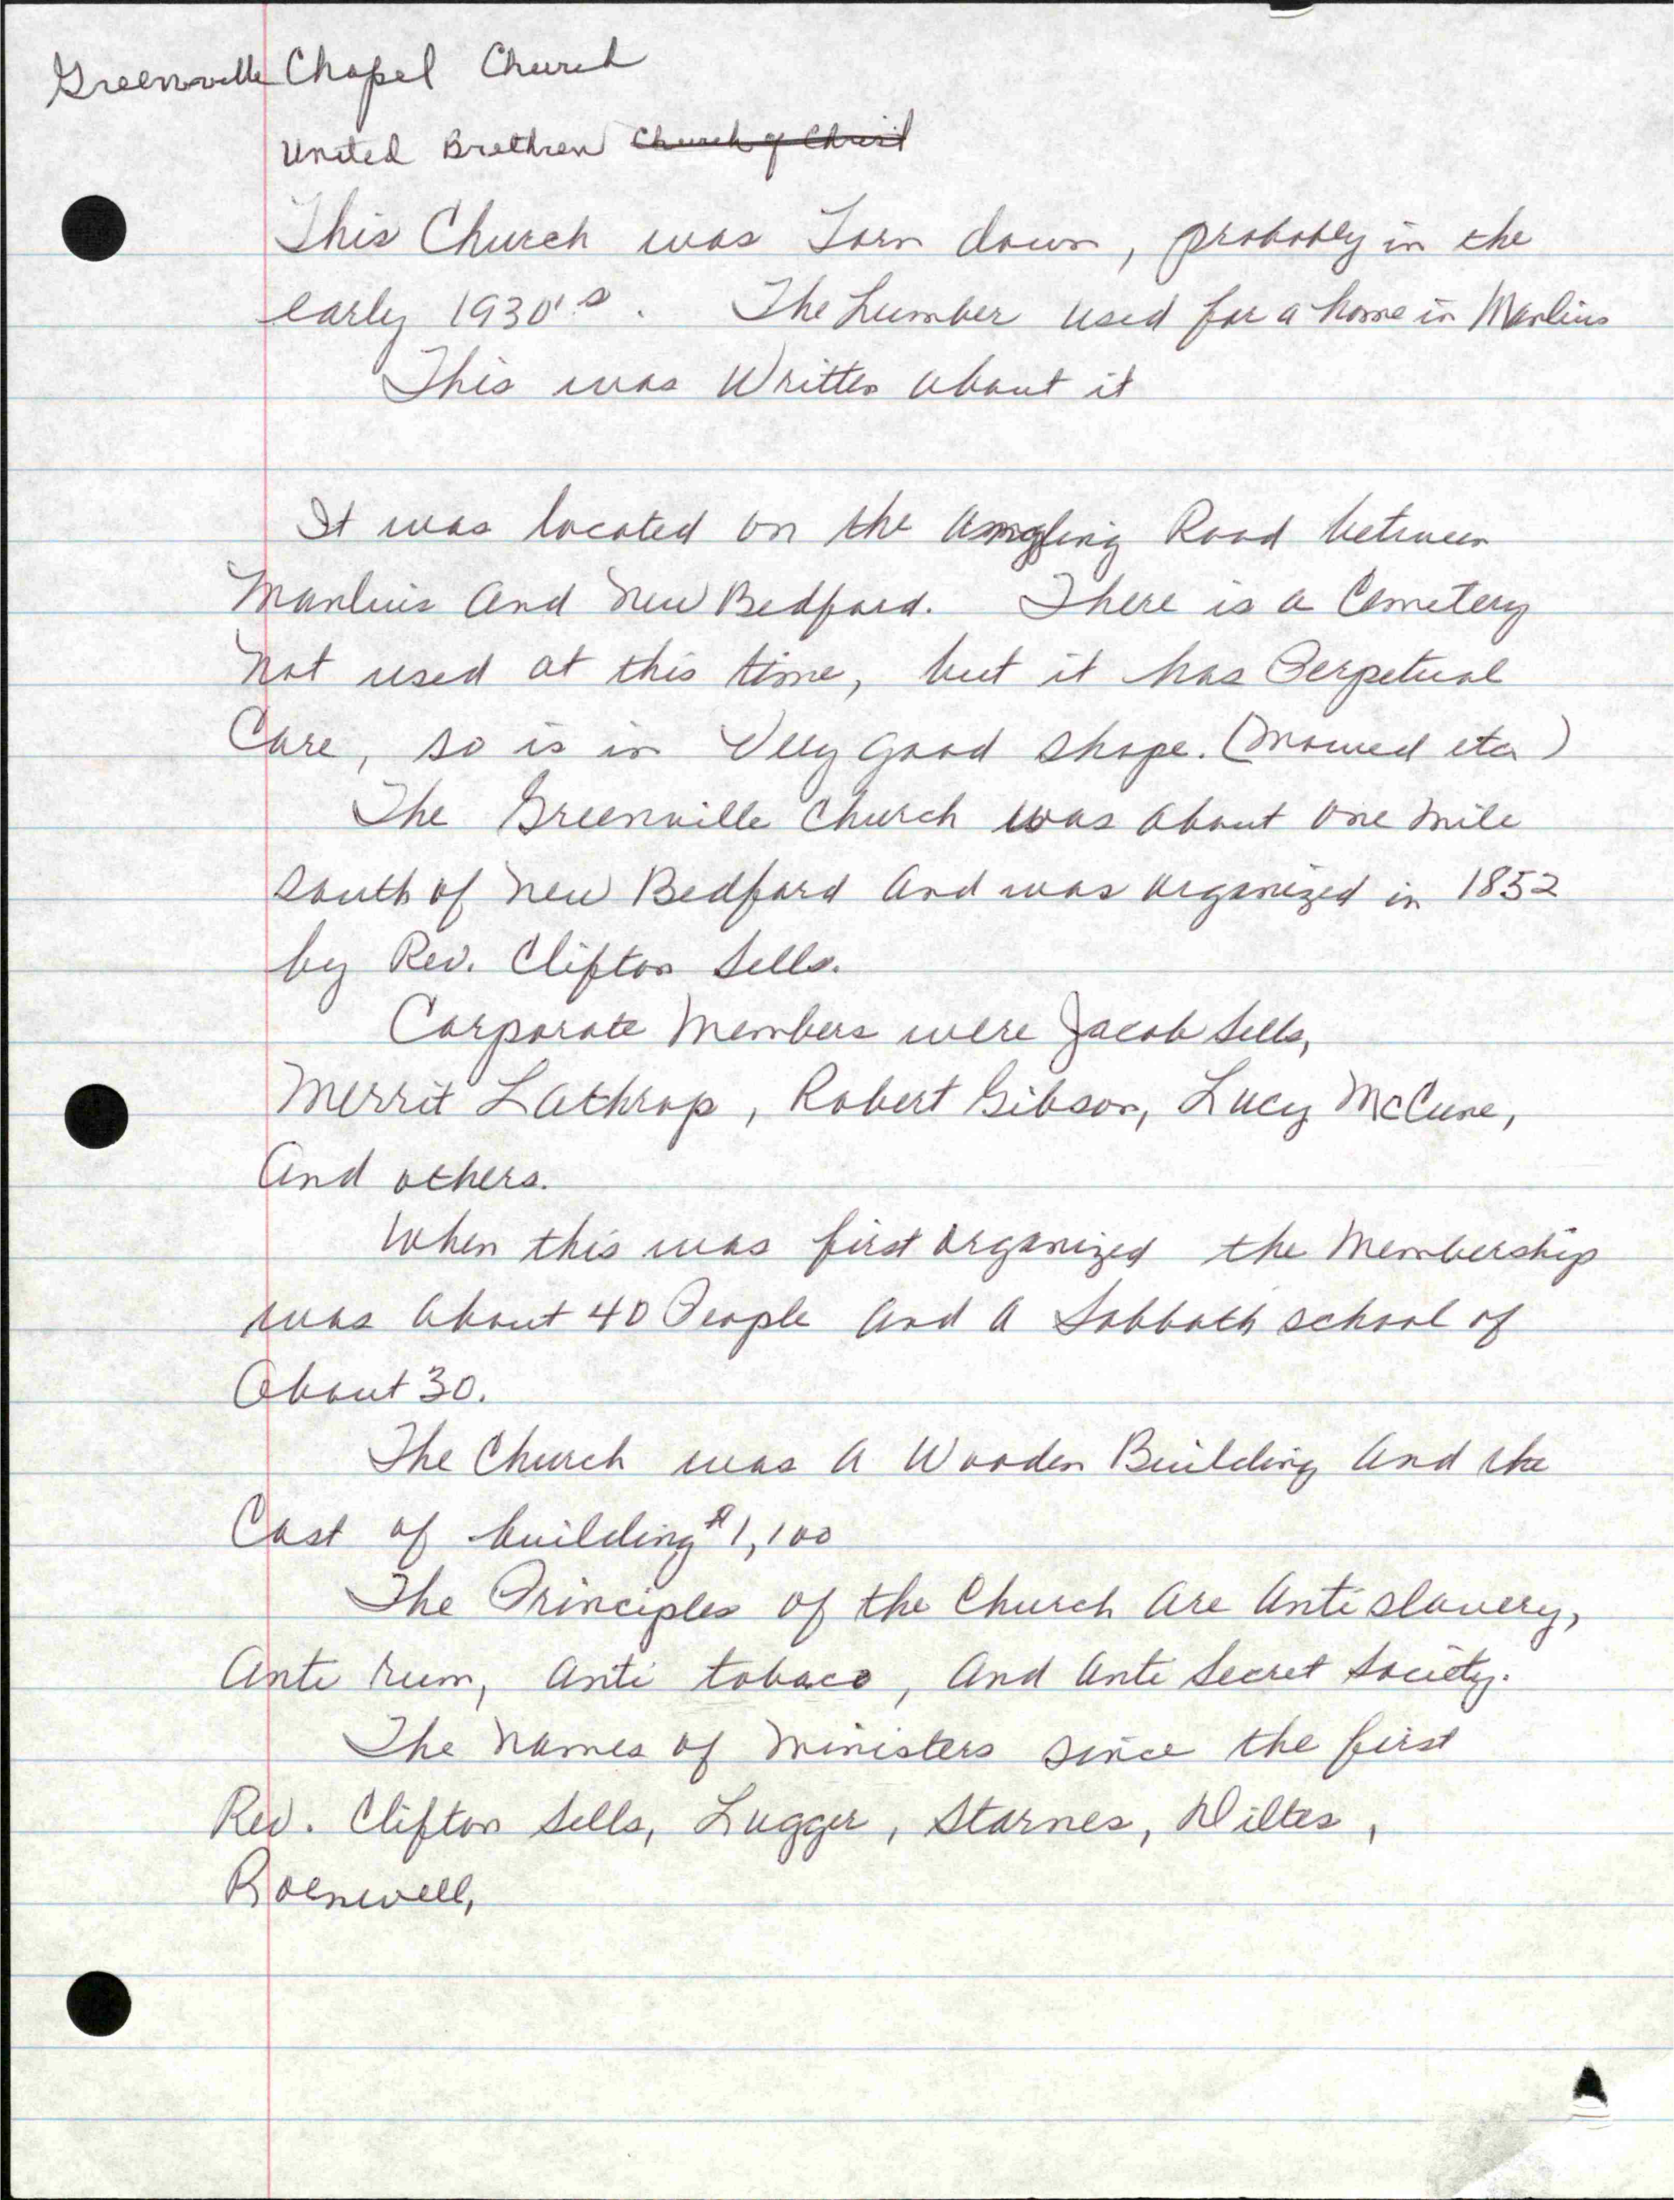 Greenville Chapel Church
United Brethren Church of Christ
This Church was Torn down, probably in the
early 1930's. The Lumber used for a home in Manlius
This was Written about it
It was located on the angling Road between
Manlius and New Bedford. There is a Cemetery
Not used at this time, but it has Perpetual
Care, so is in Very good shape. (Mowed etc)
The Greenville Church was about one mile
South of New Bedford and was organized in 1852
by Rev. Clifton Sells.
Corporate Members were Jacob Sells,
Merrit Lathrop, Robert Gibson, Lucy McCune,
And others.
When this was first organized the Membership
was about 40 People and a Sabbath school of
About 30.
The Church was a Wooden Building and the
Cost of building $1,100
The Principles of the Church are Anti slavery,
Anti rum, anti tobaco, and anti Secret Society.
The names of Ministers since the first
Rev. Clifton Sells, Lugger, Starnes, Diltes,